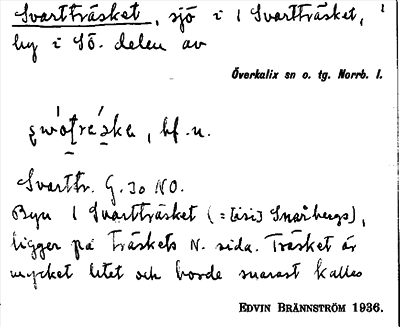 Svartträsket, sjö i 1 Svartträsket, 1
by i SÖ. delen av
Överkalix sn o. tg. Norrb. l.
bf. n.
Svarttr. G. 30 NO.
Byn 1 Svartträsket (= Snårbergs),
ligger på Träskets N. sida. Träsket är
mycket litet och borde snarast kallas
EDVIN BRÄNNSTRÖM 1936.